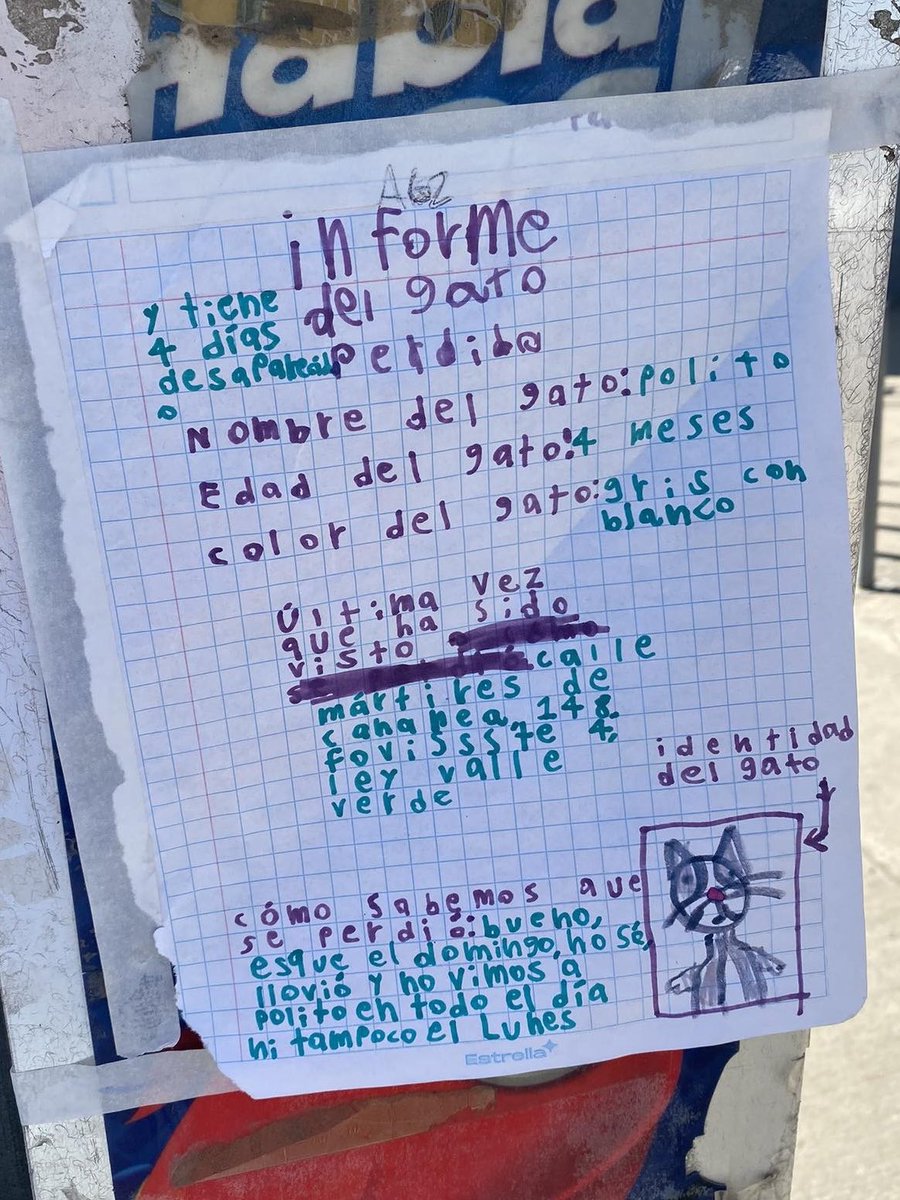 Habla
A62
informe
del gato
perdido
y tiene
4 días
desaparecid
o
Nombre del gato: polito
Edad del gato: 4 meses
color del gato: gris con
blanco
Última vez
que ha sido
visto
calle
mártires de
cananea, 148
fovissste 4,
ley valle
verde
identidad
del gato
cómo sabemos que
se perdió: bueno,
esque el domingo, no sé,
llovió y no vimos a
polito en todo el día
ni tampoco el Lunes
Estrella